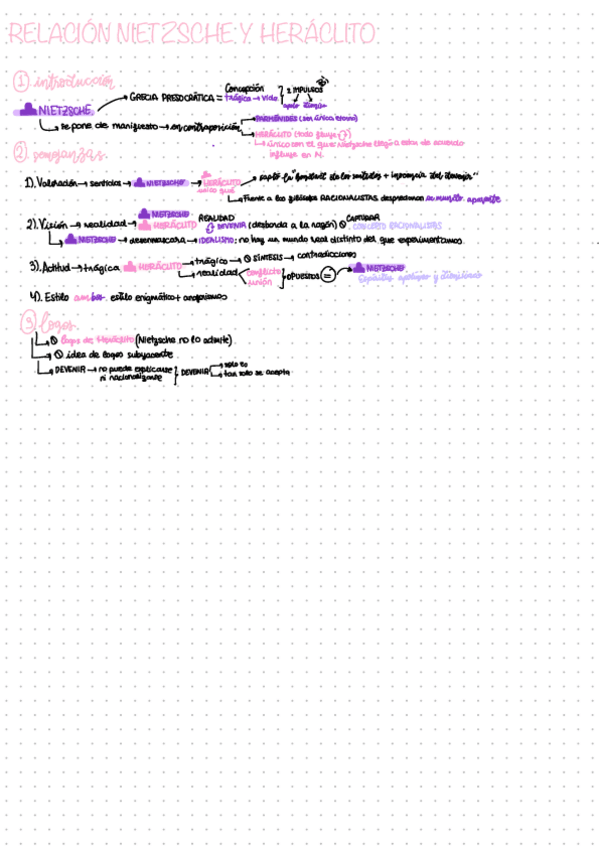 RELACIÓN NIETZSCHE Y HERÁCLITO
1) introducción.
Concepción
NIETZSCHE → GRECIA PRESOCRÁTICA = trágica → vida } 2 IMPULSOS
apolo
se pone de manifiesto → en contraposición → PARMÉNIDES (ser único eterno)
→ HERÁCLITO (todo fluye)
→ único con el que Nietzsche llegó a estar de acuerdo
influye en N.
2) semejanzas.
1). Valoración → sentidos → NIETZSCHE → HERÁCLITO → captó la
único que
→ Frente a los filósofos RACIONALISTAS despreciaron su mundo aparente
2). Visión → realidad → NIETZSCHE REALIDAD
HERÁCLITO DEVENIR (desborda a la razón) CAPTURAR CONCEPTO RACIONALISTAS
→ NIETZSCHE → desenmascara → IDEALISMO: no hay un mundo real distinto del que experimentamos
3). Actitud → trágica HERÁCLITO → trágico → SÍNTESIS → contradicciones
→ realidad < conflicto unión } OPUESTOS = NIETZSCHE
Espíritus apolíneo y dionisíaco
4). Estilo ambos estilo enigmático + aforismos
3) logos.
→ logos de Heráclito (Nietzsche no lo admite).
→ idea de logos subyacente.
→ DEVENIR → no puede explicarse ni racionalizarse } DEVENIR → solo es
→ tan solo se acepta